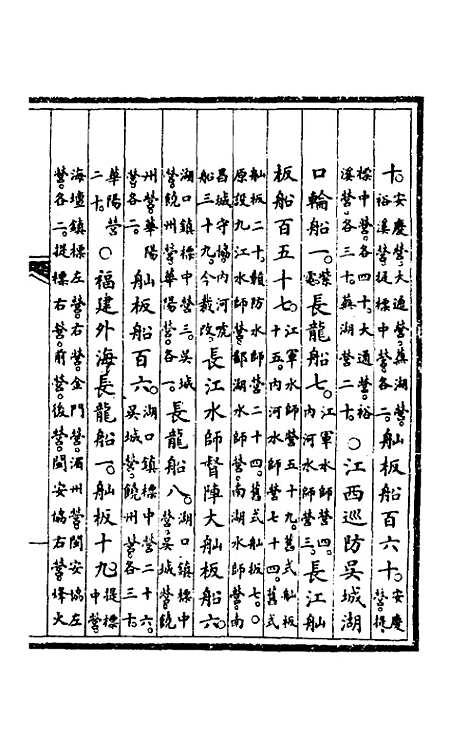 十。安慶營。大通營。蕪湖營。裕溪營。提標中營。各二。舢板船百六十。安慶營。提
標中營。各四十。大通營。裕溪營。各三十。蕪湖營二十。○江西巡防吳城湖
口輪船一。紫電。長龍船七。江軍水師營四。內河水師營三。長江舢
板船百五十七。江軍水師營五十九。舊式舢板十五。內河水師營七十四。舊式
舢板二十。賴防水師營二十四。舊式舢板七。○原設九江水師營。鄱湖水師營。南湖水師營。南
昌城守協內河虎船三十九。今裁改。長江水師督陣大舢板船六。
湖口鎮標中營三。吳城營。饒州營。華陽營。各一。長龍船八。湖口鎮標中營。吳城營。饒
州營。華陽營。各二。舢板船百六。湖口鎮標中營二十六。吳城營。饒州營。各三十。
華陽營二十。○福建外海長龍船一。舢板十九。提標中營。
海壇鎮標左營。右營。金門營。湄州營。閩安協左營。各二。提標右營。前營。後營。閩安協右營。烽火